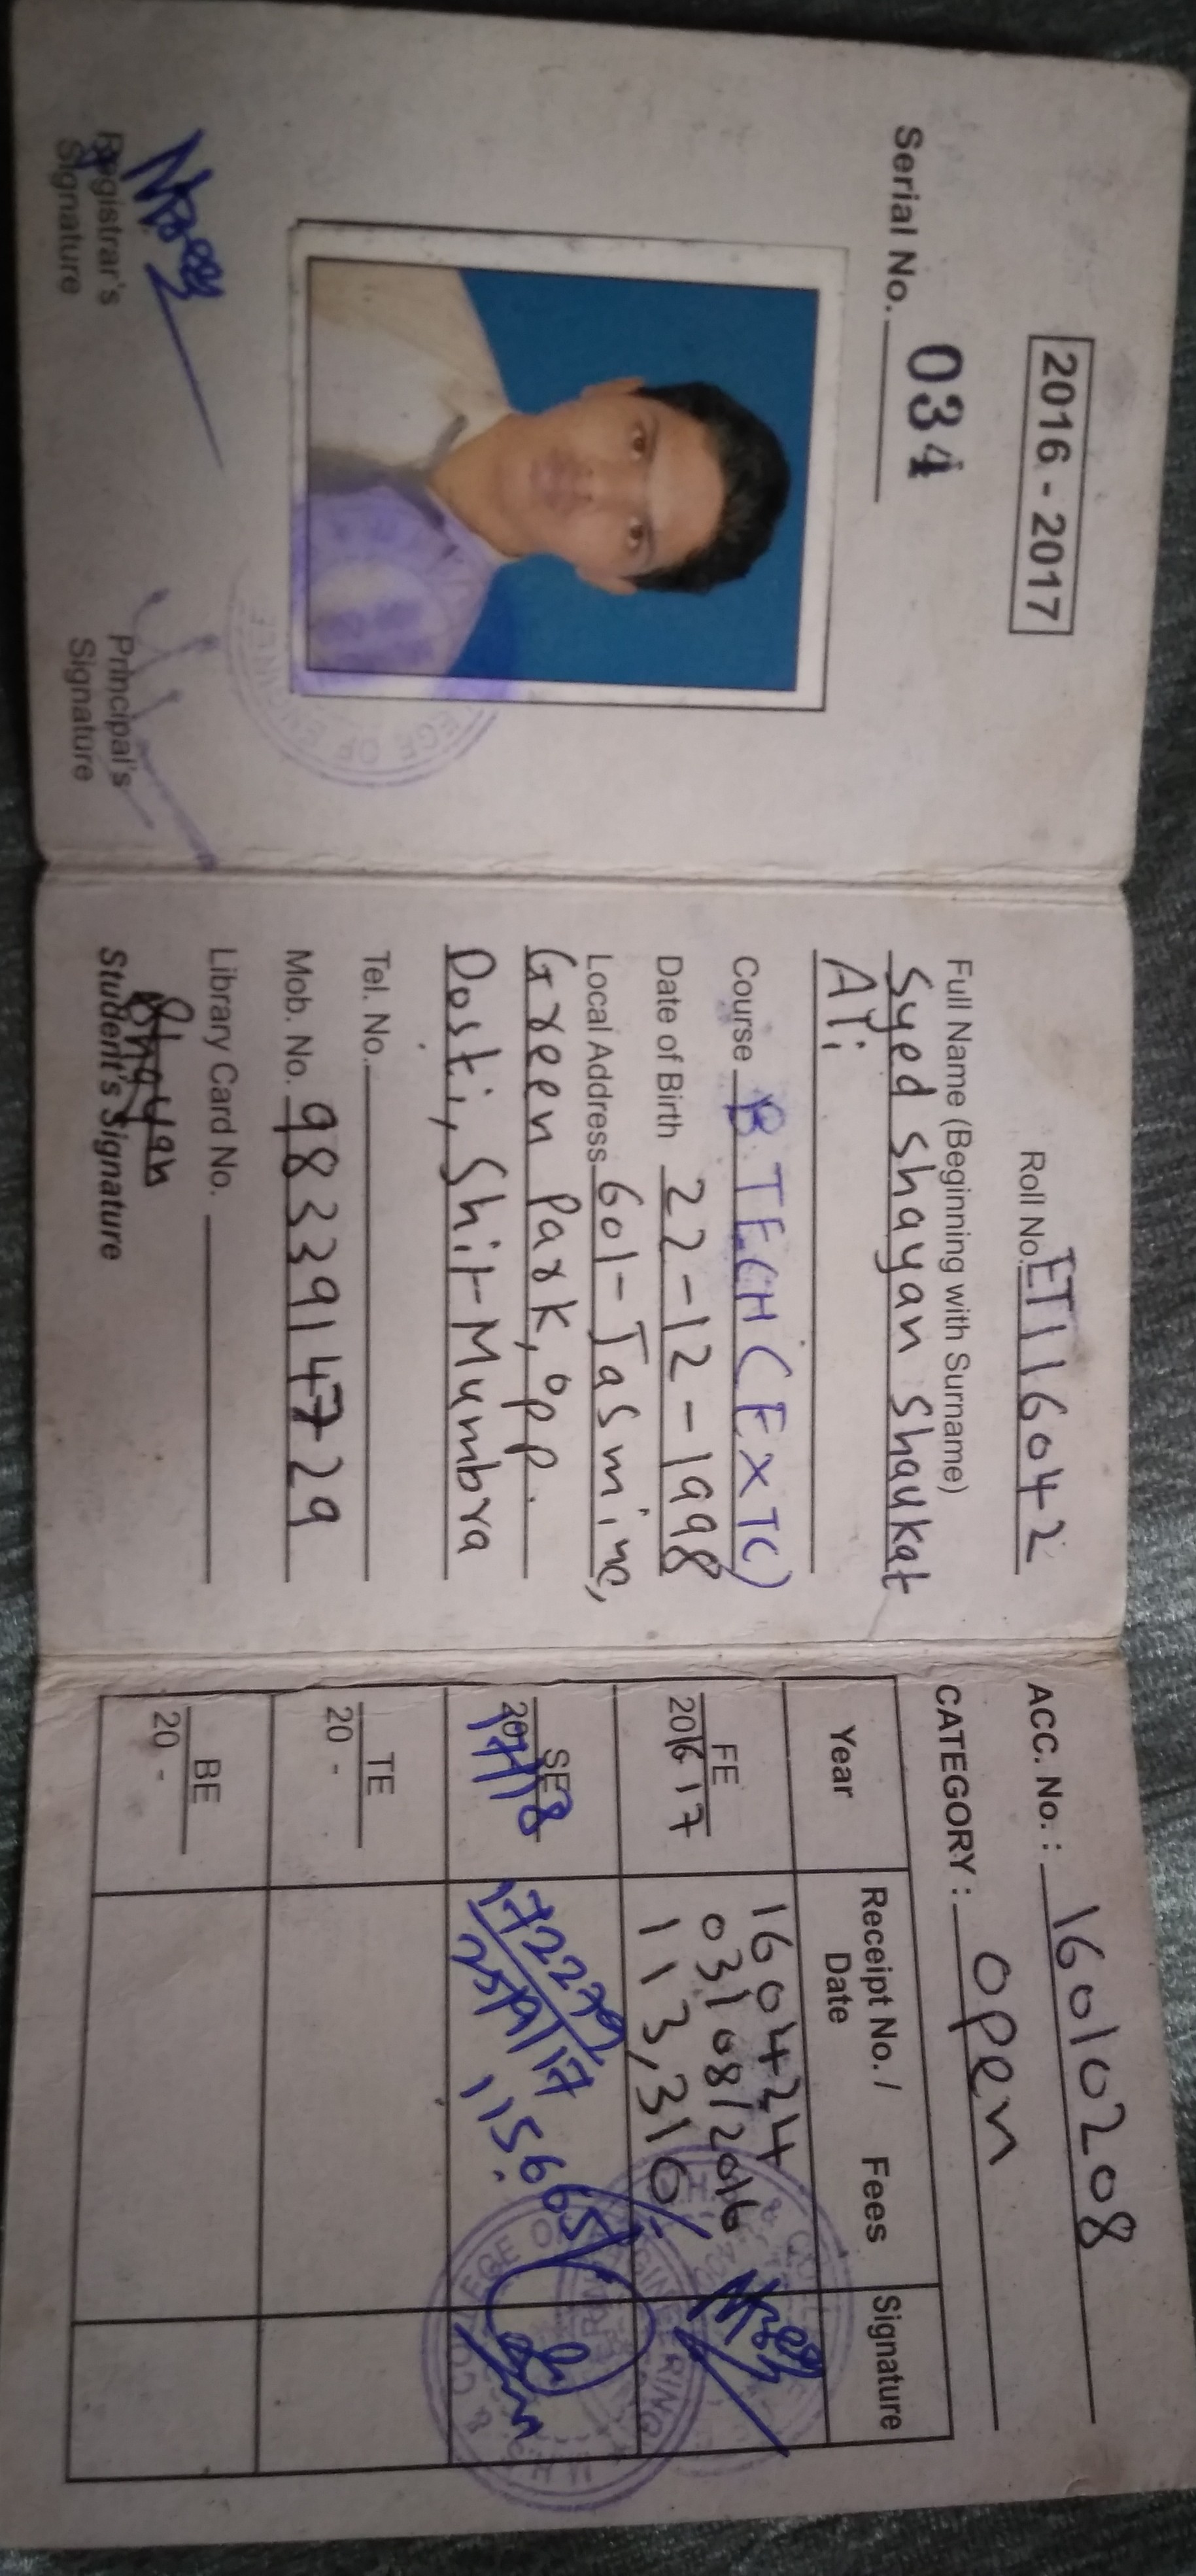 2016 - 2017
Serial No. 034
Registrar's
Signature
Principal's
Signature
Roll No. ET116042
Full Name (Beginning with Surname)
Syed Shayan Shaukat
Ali
Course B TECH (EXTC)
Date of Birth 22-12-1998
Local Address 601-Jasmine,
Green Park, opp.
Dosti, Shil-Mumbra
Tel. No.
Mob. No. 9833914729
Library Card No.
Shayan
Student's Signature
ACC. No. : 16010208
CATEGORY : Open
Year Receipt No. / Date Fees Signature
FE 2016 17 160424
03/08/2016
113,310/-
SE 17/18 172279
25/9/17 115665/-
TE
20 -
BE
20 -